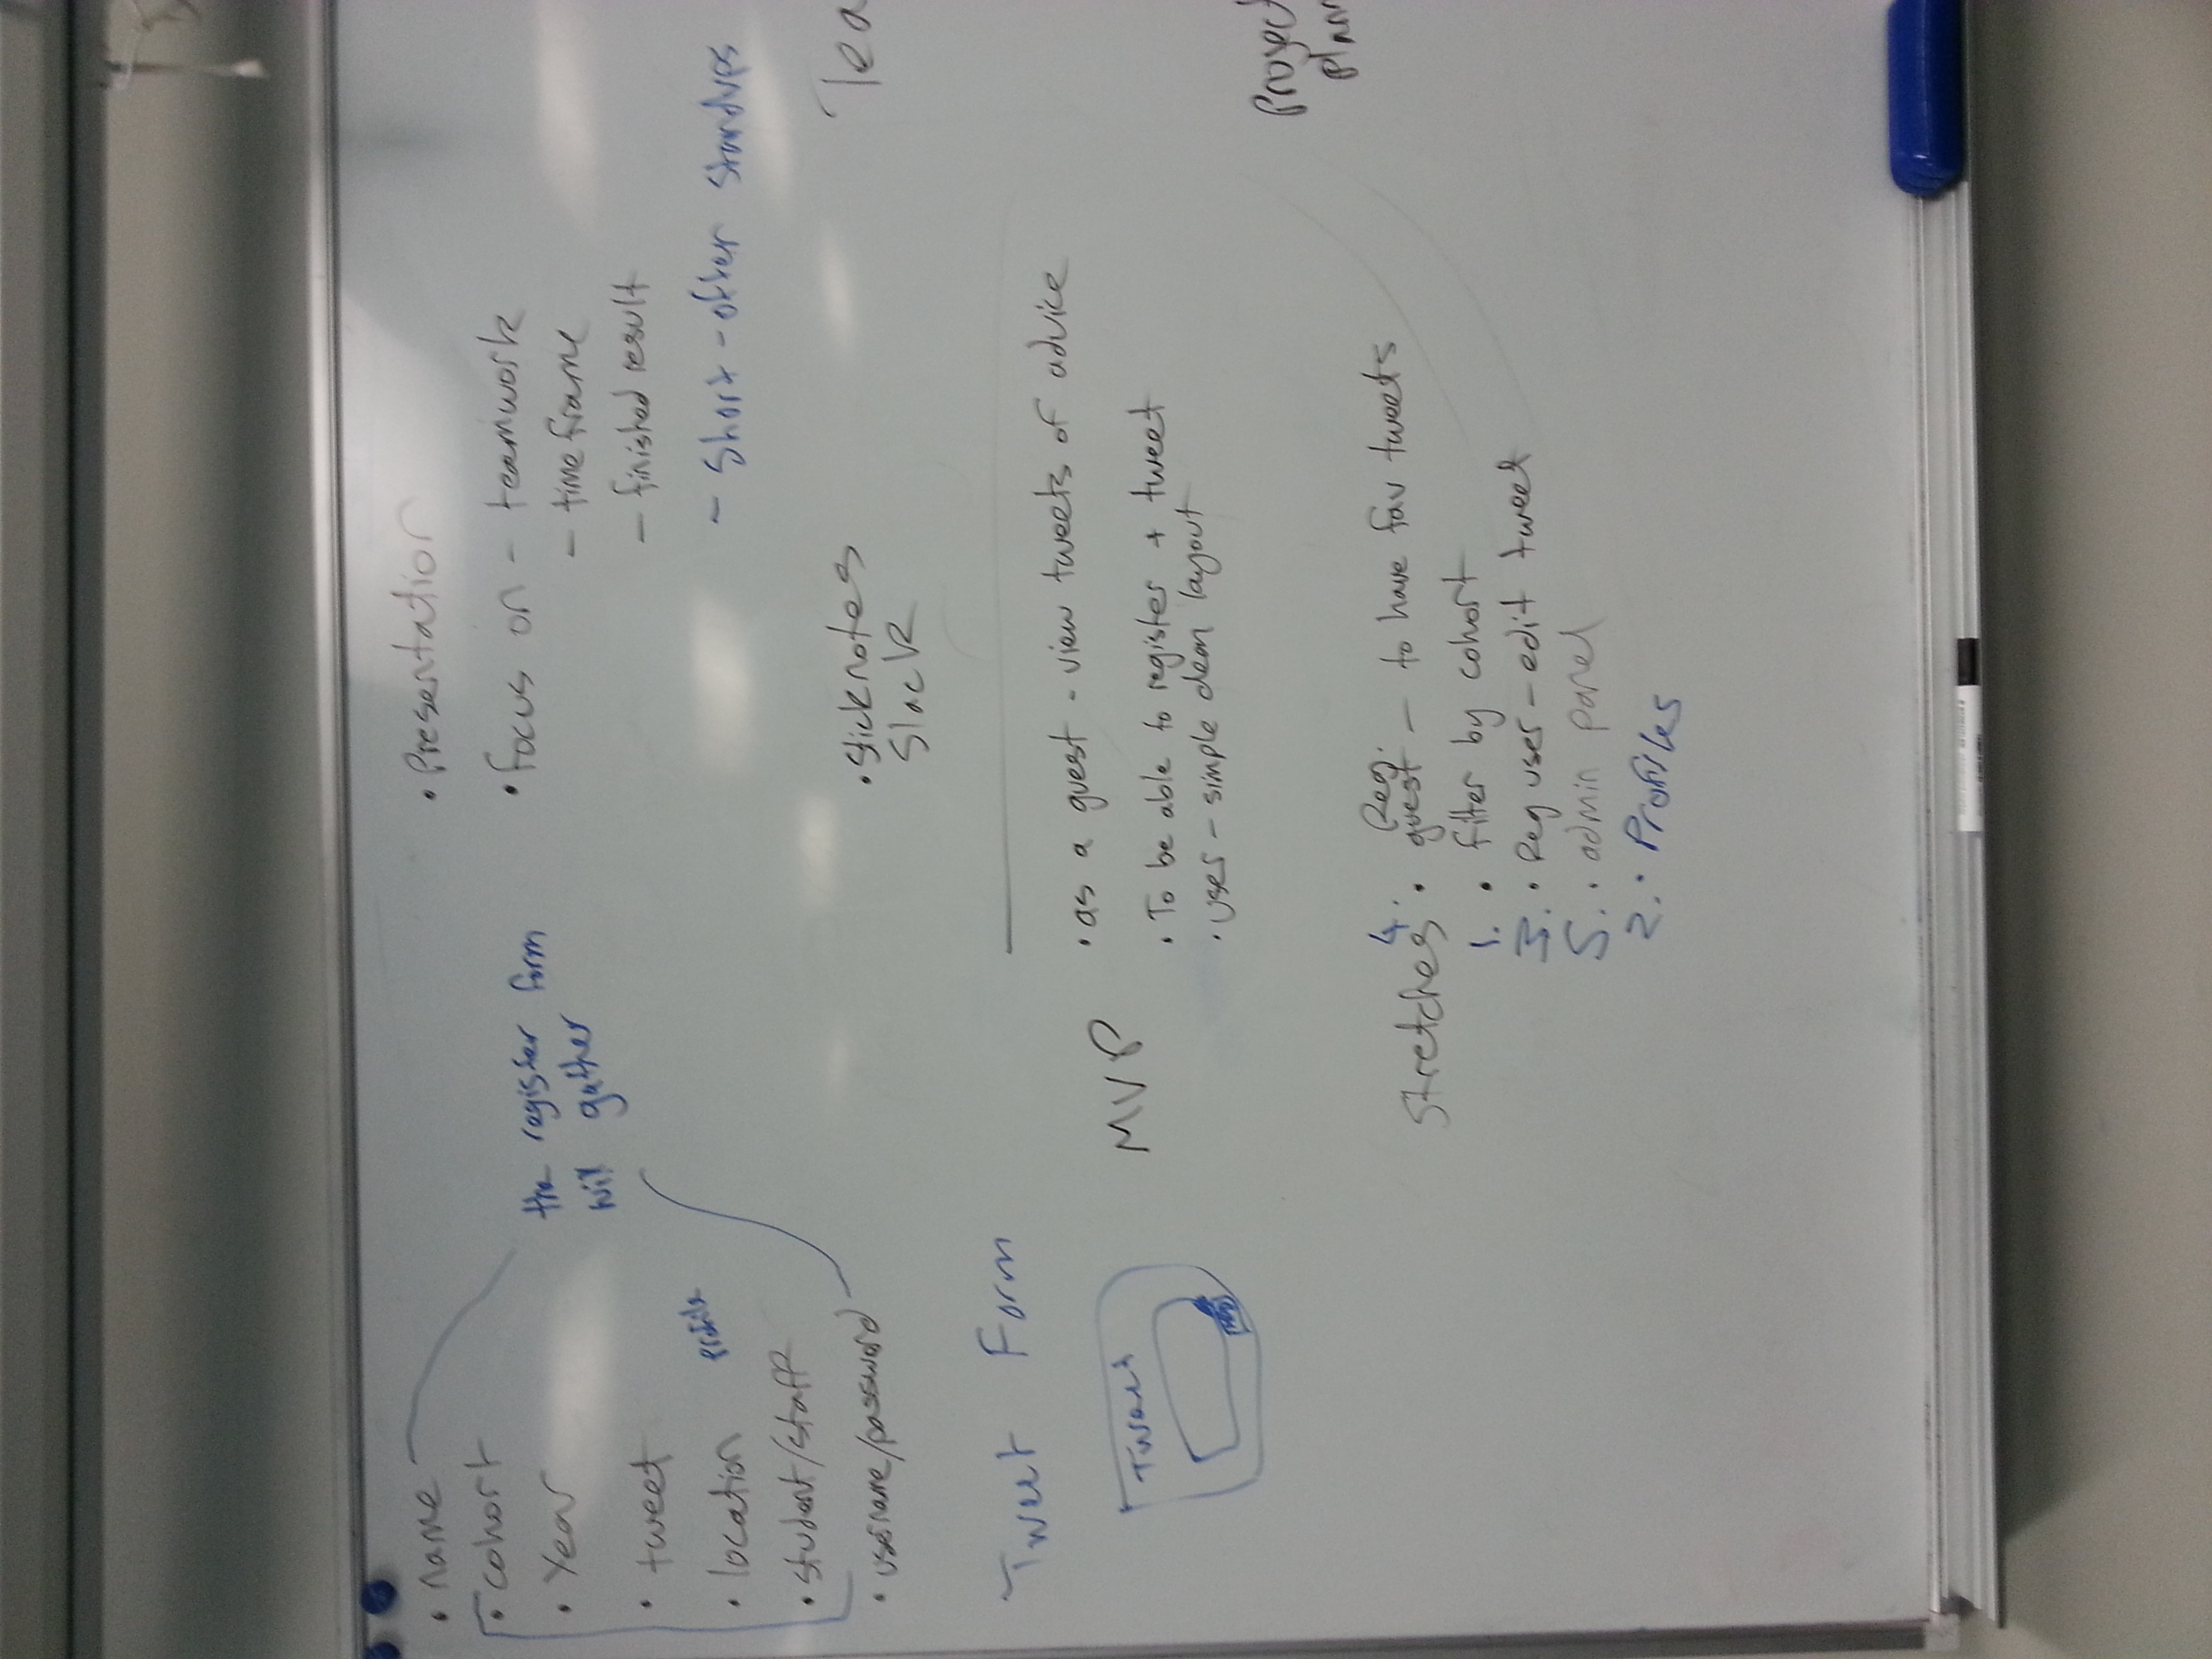 • name
• cohort
• Year
• tweet
• location profile
• student/staff
• username/password
the register form
will gather
Tweet Form
Tweet
• Presentation
• Focus on - teamwork
- time frame
- finished result
- Short - often standups
• Sticknotes
Slack
Tea
MVP
• as a guest - view tweets of advice
• To be able to register + tweet
• user - simple clean layout
Project
plann
Stretches
4. • Reg.
guest - to have fav tweets
1. • filter by cohort
3. • Reg user - edit tweet
5. • admin panel
2. • Profiles